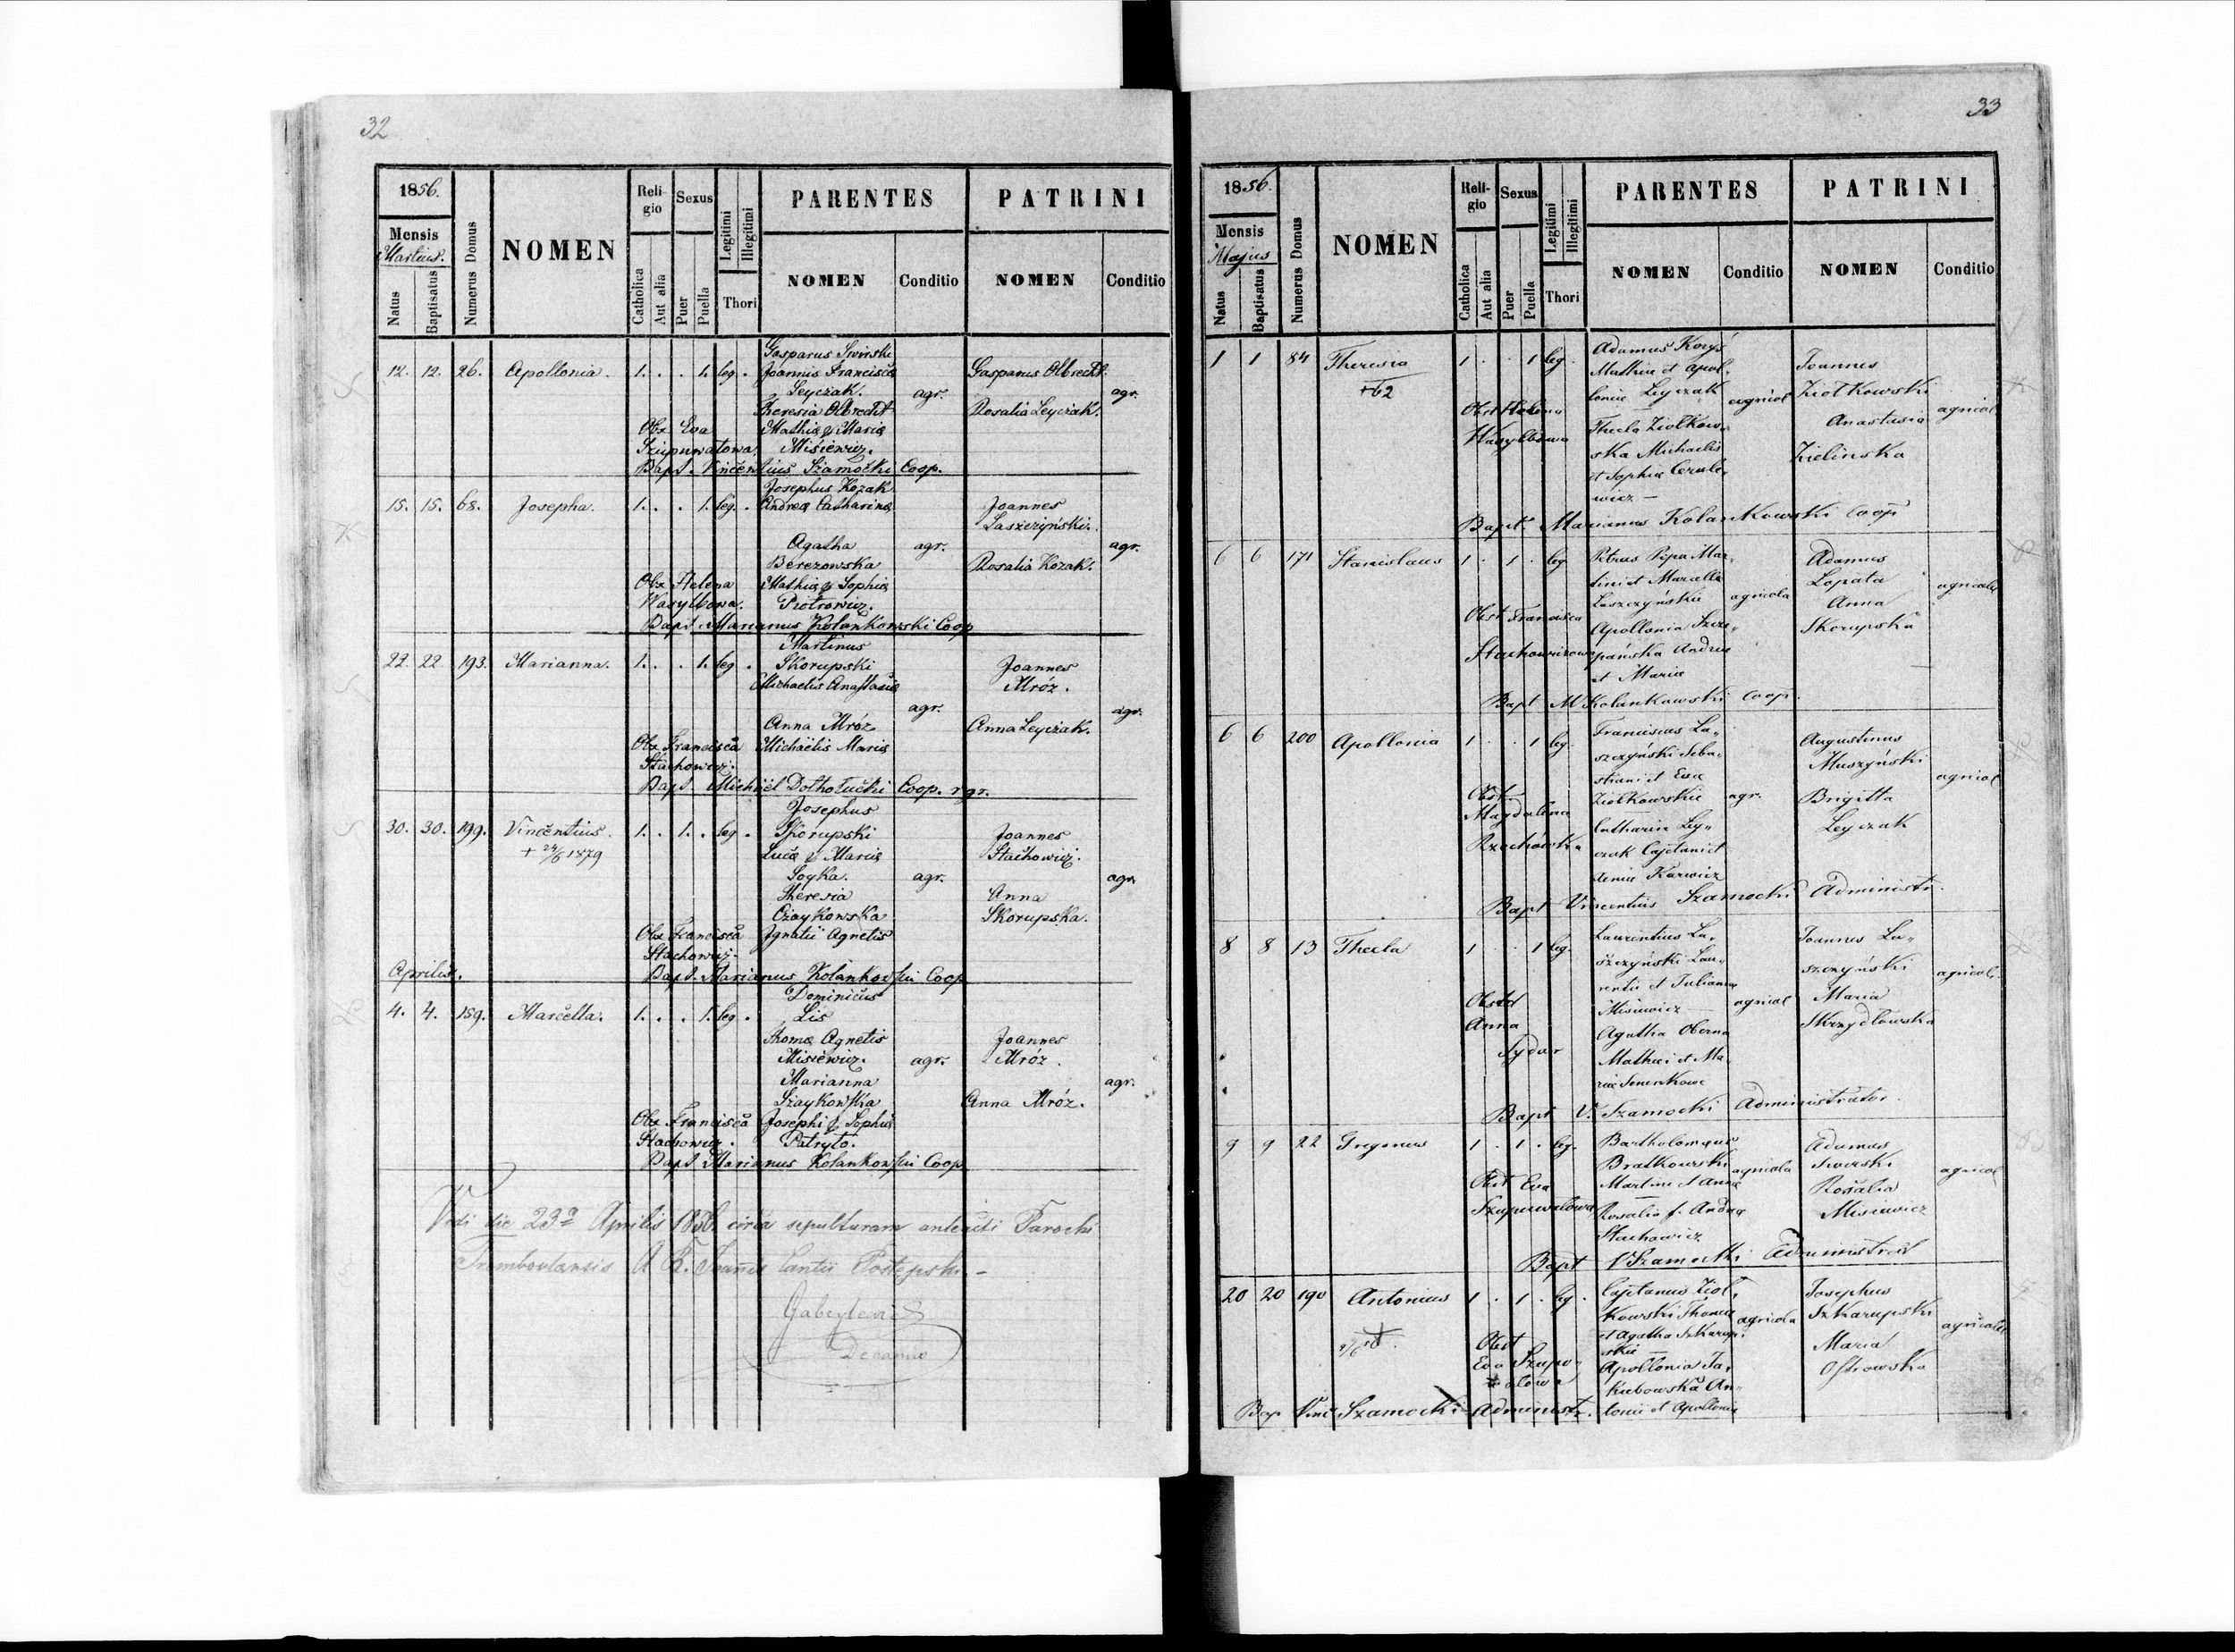 32
1856.
Mensis
Martius.
Natus
Baptisatus
Numerus Domus
NOMEN
Reli-
gio
Catholica
Aut alia
Sexus
Puer
Puella
Legitimi
Illegitimi
Thori
PARENTES
NOMEN
Conditio
PATRINI
NOMEN
Conditio
12. 12. 26. Apollonia. 1. . . 1. leg .
Gasparus Swirski
Joannis Francisca
Leyczak.
agr.
Theresia Olbrecht
Mathiæ & Maria
Misiewicz.
Gasparus Olbrecht
Rosalia Leyczak.
agr.
Obx Eva
Szupuwatowa
Bapt. Vincentius Szamocki Coop.
15. 15. 68. Josepha. 1. . . 1. leg. .
Josephus Kozak
Andreæ Catharina
Agatha
Berezowska
agr.
Mathiæ & Sophia
Piotrowicz.
Joannes
Laszczyński.
Rosalia Kozak.
agr.
Obx Helena
Wasylkowa.
Bapt. Marianus Kolankowski Coop
22. 22. 193. Marianna. 1. . . 1. leg .
Martinus
Skorupski
Michaelis Anastasia
agr.
Anna Mróz
Michaëlis Maria
Joannes
Mróz.
Anna Leyczak.
agr.
Obx Francisca
Stachowicz.
Bapt Michael Dolholucki Coop. r gr.
30. 30. 199. Vincentius. 1. . 1. . leg .
+ 24/6 1879
Josephus
Skorupski
Lucæ & Maria
Soyka.
agr.
Theresia
Czaykowska
Ignatii Agnetis
Joannes
Stachowicz.
Anna
Skorupska.
agr.
Obx Francisca
Stachowicz.
Bapt. Marianus Kolankowski Coop
Aprilis.
4. 4. 159. Marcella. 1. . . 1. leg .
Dominicus
Lis
Thomæ Agnetis
Misiewicz.
agr.
Marianna
Szaykowska
Josephi & Sophia
Patryto.
Joannes
Mróz.
Anna Mróz.
agr.
Obx Francisca
Stachowicz.
Bapt Marianus Kolankowski Coop
Vidi die 23a Aprilis 1856 circa sepulturam Parochi
Trembovlensis A R. Joannis Cantii Postepski -
Decanus
33
1856.
Mensis
Majus
Natus
Baptisatus
Numerus Domus
NOMEN
Reli-
gio
Catholica
Aut alia
Sexus
Puer
Puella
Legitimi
Illegitimi
Thori
PARENTES
NOMEN
Conditio
PATRINI
NOMEN
Conditio
1 1 84 Theresia 1 . . 1 leg.
+62
Adamus Koryś
Mathiæ et Apol,
loniæ Leyczak agricol
Thecla Ziółkow,
ska Michaelis
et Sophiæ Cerule,
wicz —
Joannes
Ziółkowski
Anastasia
Zielinska
agricol
Obst Helena
Bapt. Marianus Kolankowski Coop
6 6 171 Stanislaus 1 . 1 . leg
Petrus Pepa Mar
tini et Marcella
Laszczyńskie agricola
Apollonia Szcze,
pańska Andreæ
et Mariæ
Adamus
Lopata
Anna
Skorupska
agricolæ
Obst Francisca
Stachowiczowa
Bapt M Kolankowski Coop.
6 6 200 Apollonia 1 . . 1 leg.
Franciscus La,,
szczyński Seba,
stiani et Evæ
Ziółkowskie agr.
Catharina Ley,,
czak Cajetani et
Karwicz
Augustinus
Muszyński
Brigitta
Leyczak
agricol
Obst.
Magdalena
Bapt Vincentius Szamocki Administr.
8 8 13 Thecla 1 . . 1 leg.
Laurentius La,
szczyński Lau,
rentii et Juliannæ
Misiewicz — agricol
Agatha Oberna
Mathæi et Ma
riæ
Joannes La,,
szczyński
Maria
Skrzydłowska
agricol.
Obstet
Anna
Sydor
Bapt V. Szamocki Administrator.
9 9 22 Gregorius 1 . 1 . leg.
Bartholomæus
Bratkowski agricola
Martini et Anna
Rosalia f. Andreæ
Stachowicz
Adamus
Swirski
Rosalia
Misiewicz
agricol
Obst Eva
Szupuwalowa
Bapt V Szamocki Administrat
20 20 190 Antonius 1 . 1 . leg.
Cajetanus Ziół,
kowski Thomæ agricola
et Agatha Szkarup,
skie —
Apollonia Ja,
kubowska An,,
tonii et Apollonia
Josephus
Szkarupski
Maria
Ostrowska
agricolæ
Obst
Eva Szupu
Bap Vinc Szamocki Administr.